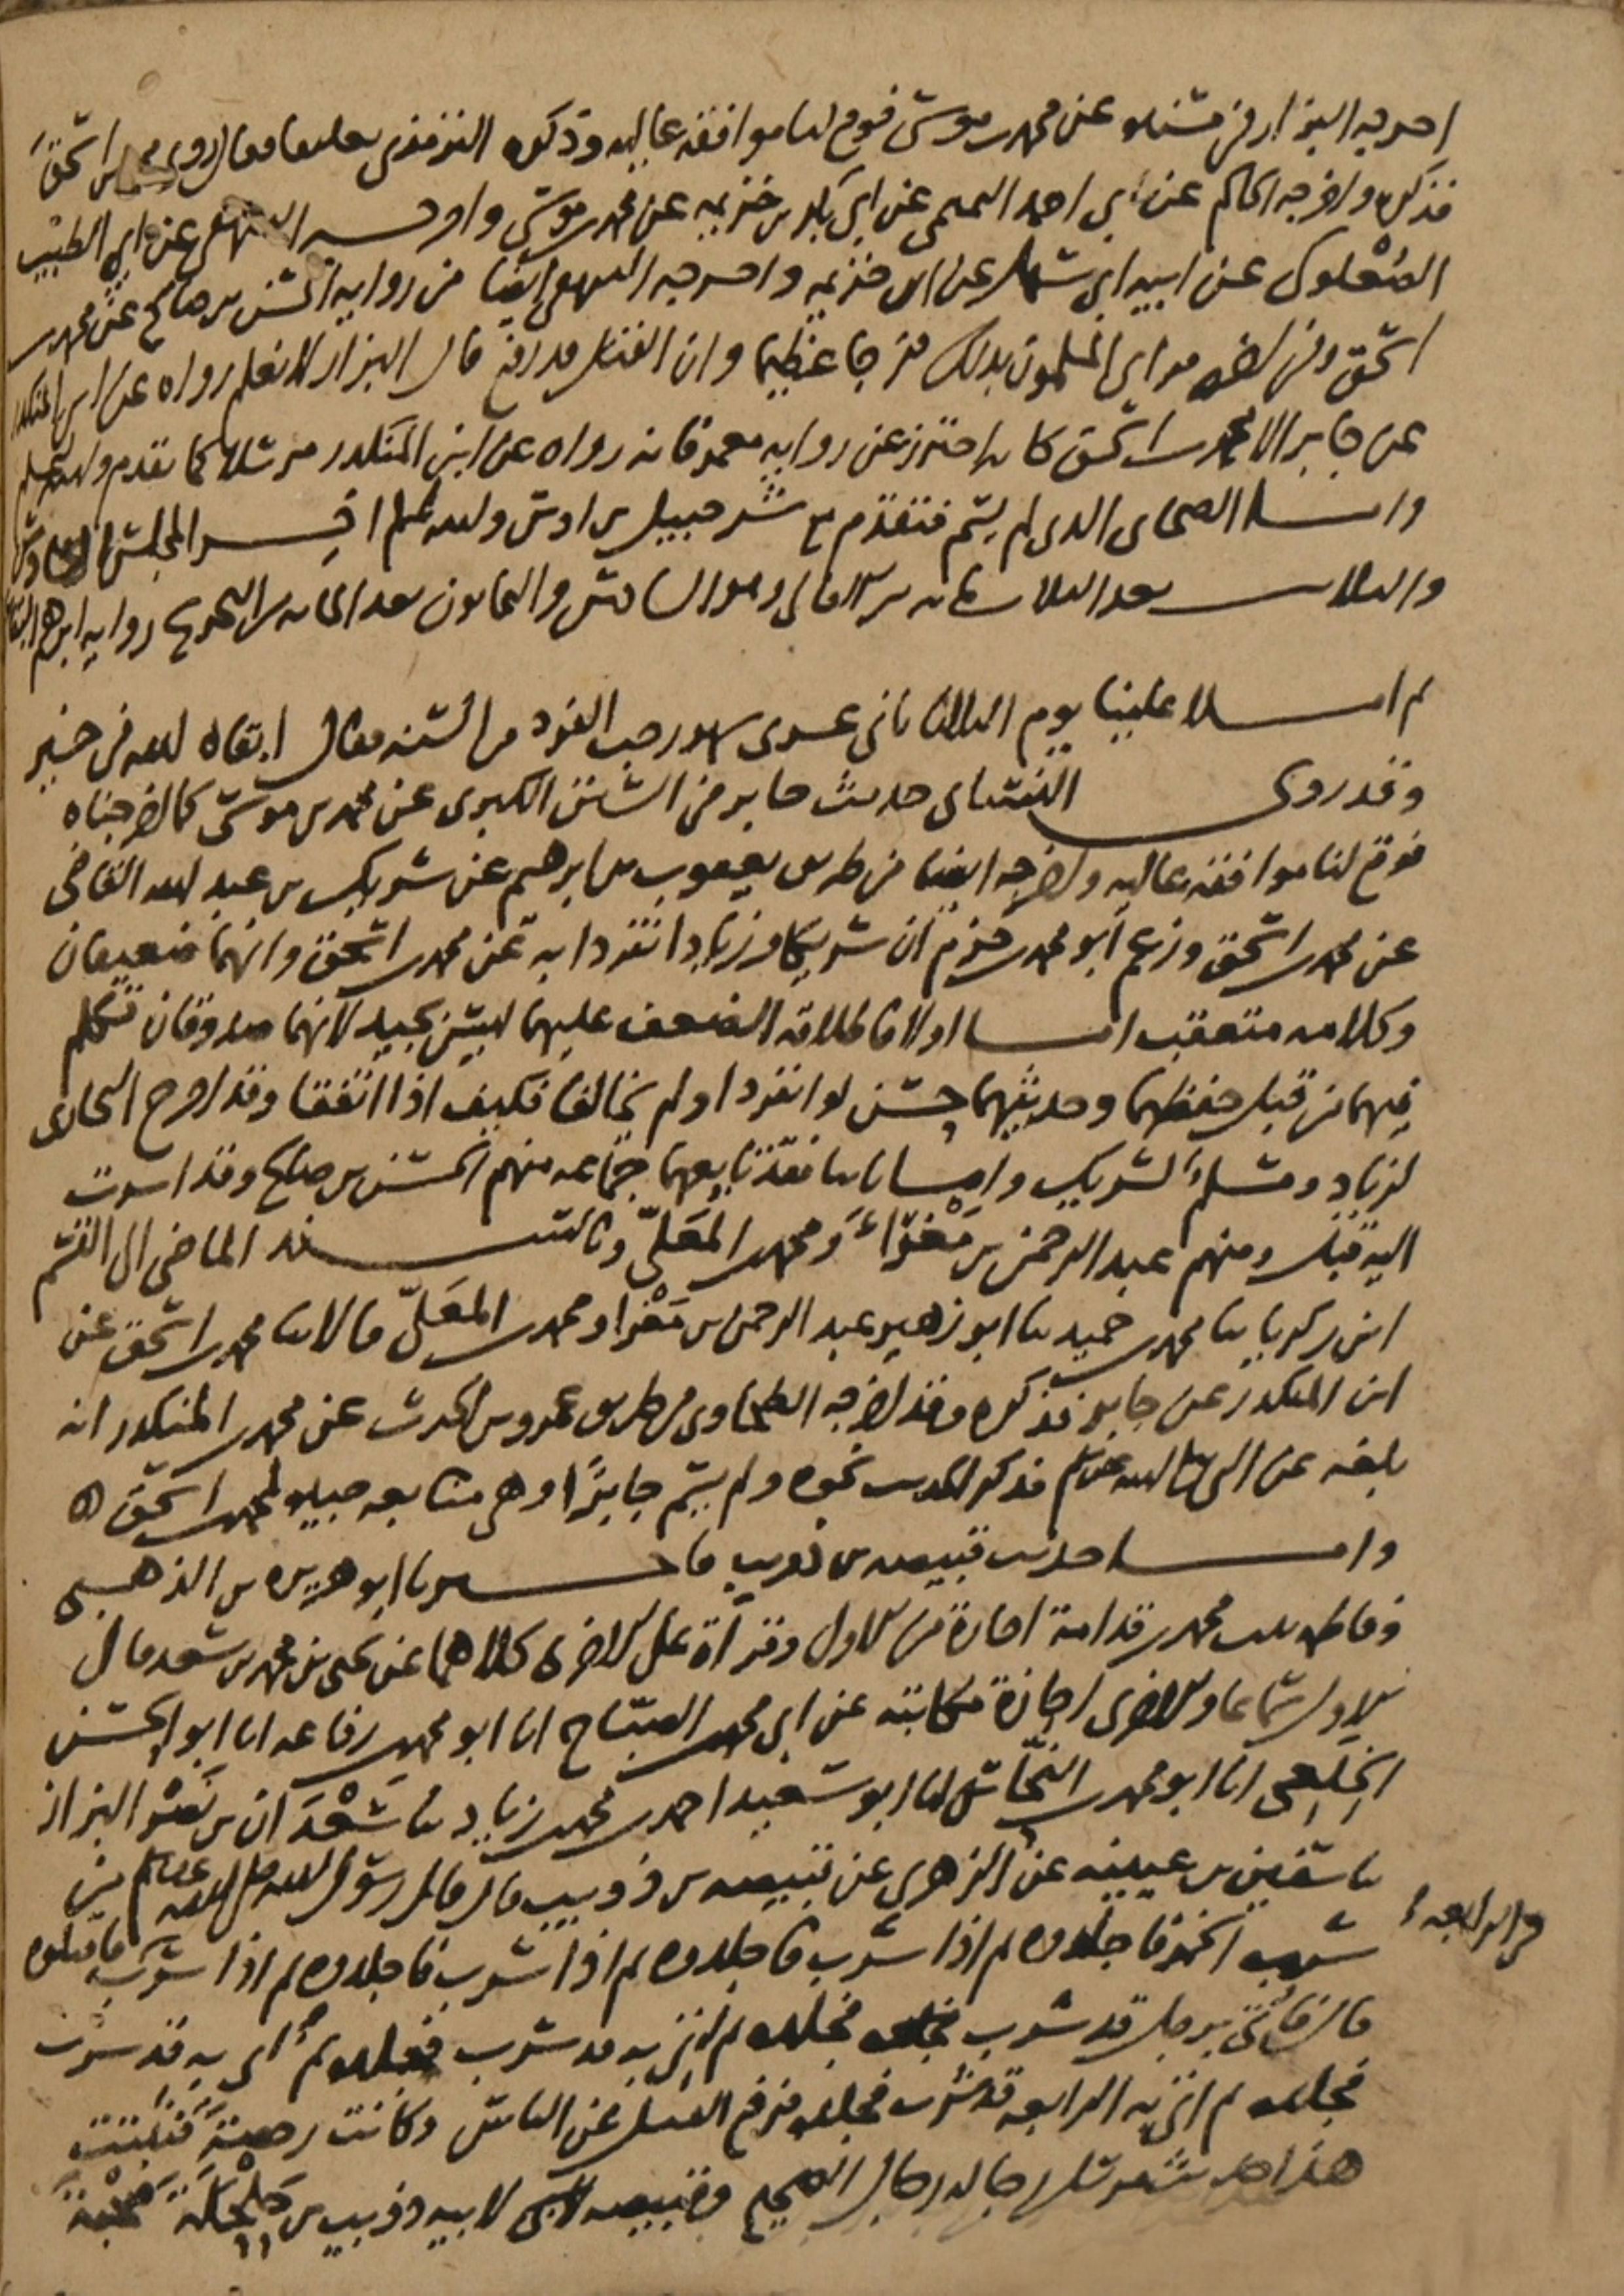 اخرجه البزار في مسنده عن محمد بن موسى فوقع لنا موافقة عالية وذكره الترمذي تعليقا فقال روى محمد بن اسحق
فذكره واخرجه الحاكم عن ابي احمد التميمي عن ابي بكر بن خزيمة عن محمد بن موسى واخرجه البيهقي عن ابي الطيب
الصُعْلوكي عن ابيه ابي سهل عن ابن خزيمة واخرجه البيهقي ايضا من رواية الحسن بن صالح عن محمد بن
اسحق وفي اخره فراى المسلمون بذلك فرجا عظيما وان القتل قد رفع قال البزار لا نعلم رواه عن ابن المنكدر
عن جابر الا محمد بن اسحق كانه احترز عن رواية معمر فانه رواه عن ابن المنكدر مرسلا كما تقدم والله اعلم
واما الصحابي الذي لم يسم فتقدم مع شرحبيل بن اوس والله اعلم اخر المجلس السادس
والثلاثين بعد الثلاثمائة من الامالي وهو السادس والثمانون بعد المائة من التخريج رواية ابرهيم البقاعي
ثم املا علينا يوم الثلاثا ثاني عشري شهر رجب الفرد من السنة فقال ابقاه الله في خير
وقد روى النسائي حديث جابر في السنن الكبرى عن محمد بن موسى كما اخرجناه
فوقع لنا موافقة عالية واخرجه ايضا من طريق يعقوب بن ابرهيم عن شريك بن عبد الله القاضي
عن محمد بن اسحق وزعم ابو محمد بن حزم ان شريكا وزيادا تفردا به عن محمد بن اسحق وانهما ضعيفان
وكلامه متعقب اما اولا فاطلاقه الضعف عليهما ليس بجيد لانهما صدوقان تكلم
فيهما من قبل حفظهما وحديثهما حسن لو انفردا ولم يخالفا فكيف اذا اتفقا وقد اخرج البخاري
لزياد ومسلم لشريك واما ثانيا فقد تابعهما جماعة منهم الحسن بن صالح وقد اشرت
اليه قبل ومنهم عبد الرحمن بن مَغْرَاءَ ومحمد بن المعَلّى وبالسند الماضي الى القسم
ابن زكريا ثنا محمد بن حميد ثنا ابو زهير عبد الرحمن بن مَغْرا ومحمد بن المعَلّى قالا ثنا محمد بن اسحق عن
ابن المنكدر عن جابر فذكره وقد اخرجه الطحاوي من طريق عمرو بن الحرث عن محمد بن المنكدر انه
بلغه عن النبي صلى الله عليه وسلم فذكر الحديث نحوه ولم يسم جابرًا وهي متابعة جيدة لمحمد بن اسحق
واما حديث قبيصة بن ذويب فاخبرنا ابو هريرة بن الذهبي
وفاطمة بنت محمد بن قدامة اجازة من الاول وقراة على الاخرى كلاهما عن يحيى بن محمد بن سعد قال
الاول سماعا والاخرى اجازة مكاتبة عن ابي محمد بن الصبّاح انا ابو محمد بن رفاعة انا ابو الحسن
الخِلَعي انا ابو محمد بن النحّاس انا ابو سعيد احمد بن محمد بن زياد ثنا سَعْدَان بن نَصْر البزاز
ثنا سفين بن عيينه عن الزهري عن قبيصة بن ذويب قال قال رسول الله صلى الله عليه وسلم من
شرب الخمر فاجلدوه ثم اذا شرب فاجلدوه ثم اذا شرب فاجلدوه ثم اذا شرب فاقتلوه
في الرابعة
قال فأتى برجل قد شرب فجلده ثم اتي به قد شرب فجلده ثم اتي به قد شرب
فجلده ثم اتي به الرابعة قد شرب فجلده فرفع القتل عن الناس وكانت رخصة فثبتت
هذا حديث مرسل رجاله رجال الصحيح وقبيصة لابيه ذويب بن حَلْحَلَة صُحْبَة